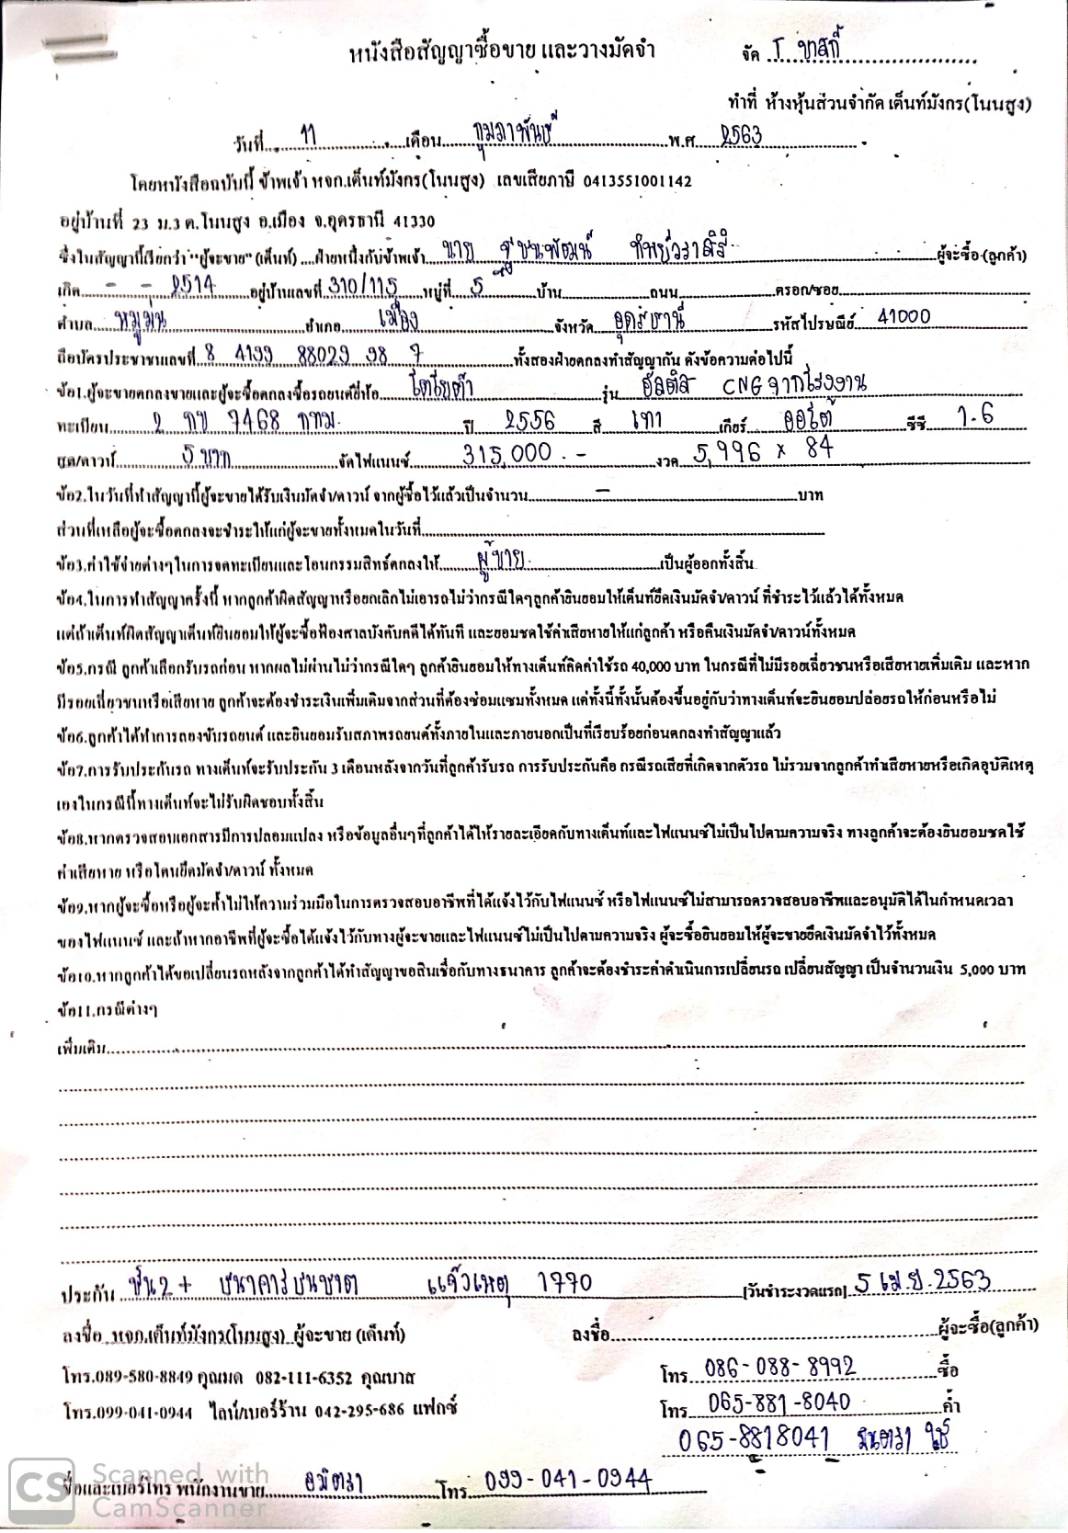 หนังสือสัญญาซื้อขาย และวางมัดจำ
จัด T. ขาสกี้
ทำที่ ห้างหุ้นส่วนจำกัด เต็นท์มังกร(โนนสูง)
วันที่ 11 เดือน กุมภาพันธ์ พ.ศ 2563
โดยหนังสือฉบับนี้ ข้าพเจ้า หจก.เต็นท์มังกร(โนนสูง) เลขเสียภาษี 0413551001142
อยู่บ้านที่ 23 ม.3 ต.โนนสูง อ.เมือง จ.อุดรธานี 41330
ซึ่งในสัญญานี้เรียกว่า "ผู้จะขาย" (เต็นท์) ....ฝ่ายหนึ่งกับข้าพเจ้า นาย ผู้จะซื้อ (ลูกค้า)
เกิด - - 2514 อยู่บ้านเลขที่ 310/115 หมู่ที่ 5 บ้าน ถนน ตรอก/ซอย
ตำบล หมูม่น อำเภอ เมือง จังหวัด อุดรธานี รหัสไปรษณีย์ 41000
ถือบัตรประชาชนเลขที่ 8 4199 88029 98 7 ทั้งสองฝ่ายตกลงทำสัญญากัน ดังข้อความต่อไปนี้
ข้อ1.ผู้จะขายตกลงขายและผู้จะซื้อตกลงซื้อรถยนต์ยี่ห้อ โตโยต้า รุ่น อัลติส CNG จากโรงงาน
ทะเบียน 2 กข 7468 กทม. ปี 2556 สี เทา เกียร์ ออโต้ ซีซี 1.6
ชุด/ดาวน์ 5 บาท จัดไฟแนนซ์ 315,000.- งวด 5,996 x 84
ข้อ2.ในวันที่ทำสัญญานี้ผู้จะขายได้รับเงินมัดจำ/ดาวน์ จากผู้ซื้อไว้แล้วเป็นจำนวน - บาท
ส่วนที่เหลือผู้จะซื้อตกลงจะชำระให้แก่ผู้จะขายทั้งหมดในวันที่
ข้อ3.ค่าใช้จ่ายต่างๆในการจดทะเบียนและโอนกรรมสิทธ์ตกลงให้ ผู้ขาย เป็นผู้ออกทั้งสิ้น
ข้อ4.ในการทำสัญญาครั้งนี้ หากลูกค้าผิดสัญญาหรือยกเลิกไม่เอารถไม่ว่ากรณีใดๆลูกค้ายินยอมให้เต็นท์ยึดเงินมัดจำ/ดาวน์ ที่ชำระไว้แล้วได้ทั้งหมด
แต่ถ้าเต็นท์ผิดสัญญาเต็นท์ยินยอมให้ผู้จะซื้อฟ้องศาลบังคับคดีได้ทันที และยอมชดใช้ค่าเสียหายให้แก่ลูกค้า หรือคืนเงินมัดจำ/ดาวน์ทั้งหมด
ข้อ5.กรณี ลูกค้าเลือกรับรถก่อน หากผลไม่ผ่านไม่ว่ากรณีใดๆ ลูกค้ายินยอมให้ทางเต็นท์คิดค่าใช้รถ 40,000 บาท ในกรณีที่ไม่มีรอยเฉี่ยวชนหรือเสียหายเพิ่มเติม และหาก
มีรอยเฉี่ยวชนหรือเสียหาย ลูกค้าจะต้องชำระเงินเพิ่มเติมจากส่วนที่ต้องซ่อมแซมทั้งหมด แต่ทั้งนี้ทั้งนั้นต้องขึ้นอยู่กับว่าทางเต็นท์จะยินยอมปล่อยรถให้ก่อนหรือไม่
ข้อ6.ลูกค้าได้ทำการลองขับรถยนต์ และยินยอมรับสภาพรถยนต์ทั้งภายในและภายนอกเป็นที่เรียบร้อยก่อนตกลงทำสัญญาแล้ว
ข้อ7.การรับประกันรถ ทางเต็นท์จะรับประกัน 3 เดือนหลังจากวันที่ลูกค้ารับรถ การรับประกันคือ กรณีรถเสียที่เกิดจากตัวรถ ไม่รวมจากลูกค้าทำเสียหายหรือเกิดอุบัติเหตุ
เองในกรณีนี้ทางเต็นท์จะไม่รับผิดชอบทั้งสิ้น
ข้อ8.หากตรวจสอบเอกสารมีการปลอมแปลง หรือข้อมูลอื่นๆที่ลูกค้าได้ให้รายละเอียดกับทางเต็นท์และไฟแนนซ์ไม่เป็นไปตามความจริง ทางลูกค้าจะต้องยินยอมชดใช้
ค่าเสียหาย หรือโดนยึดมัดจำ/ดาวน์ ทั้งหมด
ข้อ9.หากผู้จะซื้อหรือผู้จะค้ำไม่ให้ความร่วมมือในการตรวจสอบอาชีพที่ได้แจ้งไว้กับไฟแนนซ์ หรือไฟแนนซ์ไม่สามารถตรวจสอบอาชีพและอนุมัติได้ในกำหนดเวลา
ของไฟแนนซ์ และถ้าหากอาชีพที่ผู้จะซื้อได้แจ้งไว้กับทางผู้จะขายและไฟแนนซ์ไม่เป็นไปตามความจริง ผู้จะซื้อยินยอมให้ผู้จะขายยึดเงินมัดจำไว้ทั้งหมด
ข้อ10.หากลูกค้าได้ขอเปลี่ยนรถหลังจากลูกค้าได้ทำสัญญาขอสินเชื่อกับทางธนาคาร ลูกค้าจะต้องชำระค่าดำเนินการเปลี่ยนรถ เปลี่ยนสัญญา เป็นจำนวนเงิน 5,000 บาท
ข้อ11.กรณีต่างๆ
เพิ่มเติม
ประกัน ชั้น2+ ธนาคารธนชาต แจ้งเหตุ 1770 [วันชำระงวดแรก] 5 เม.ย.2563
ลงชื่อ หจก.เต็นท์มังกร(โนนสูง) ผู้จะขาย (เต็นท์) ลงชื่อ ผู้จะซื้อ(ลูกค้า)
โทร.089-580-8849 คุณมด 082-111-6352 คุณบาส โทร 086-088-8992 ซื้อ
โทร.099-041-0944 ไลน์/เบอร์ร้าน 042-295-686 แฟกซ์ โทร 065-881-8040 ค้ำ
065-8818041
ชื่อและเบอร์โทร พนักงานขาย โทร 099-041-0944
CS Scanned with
CamScanner